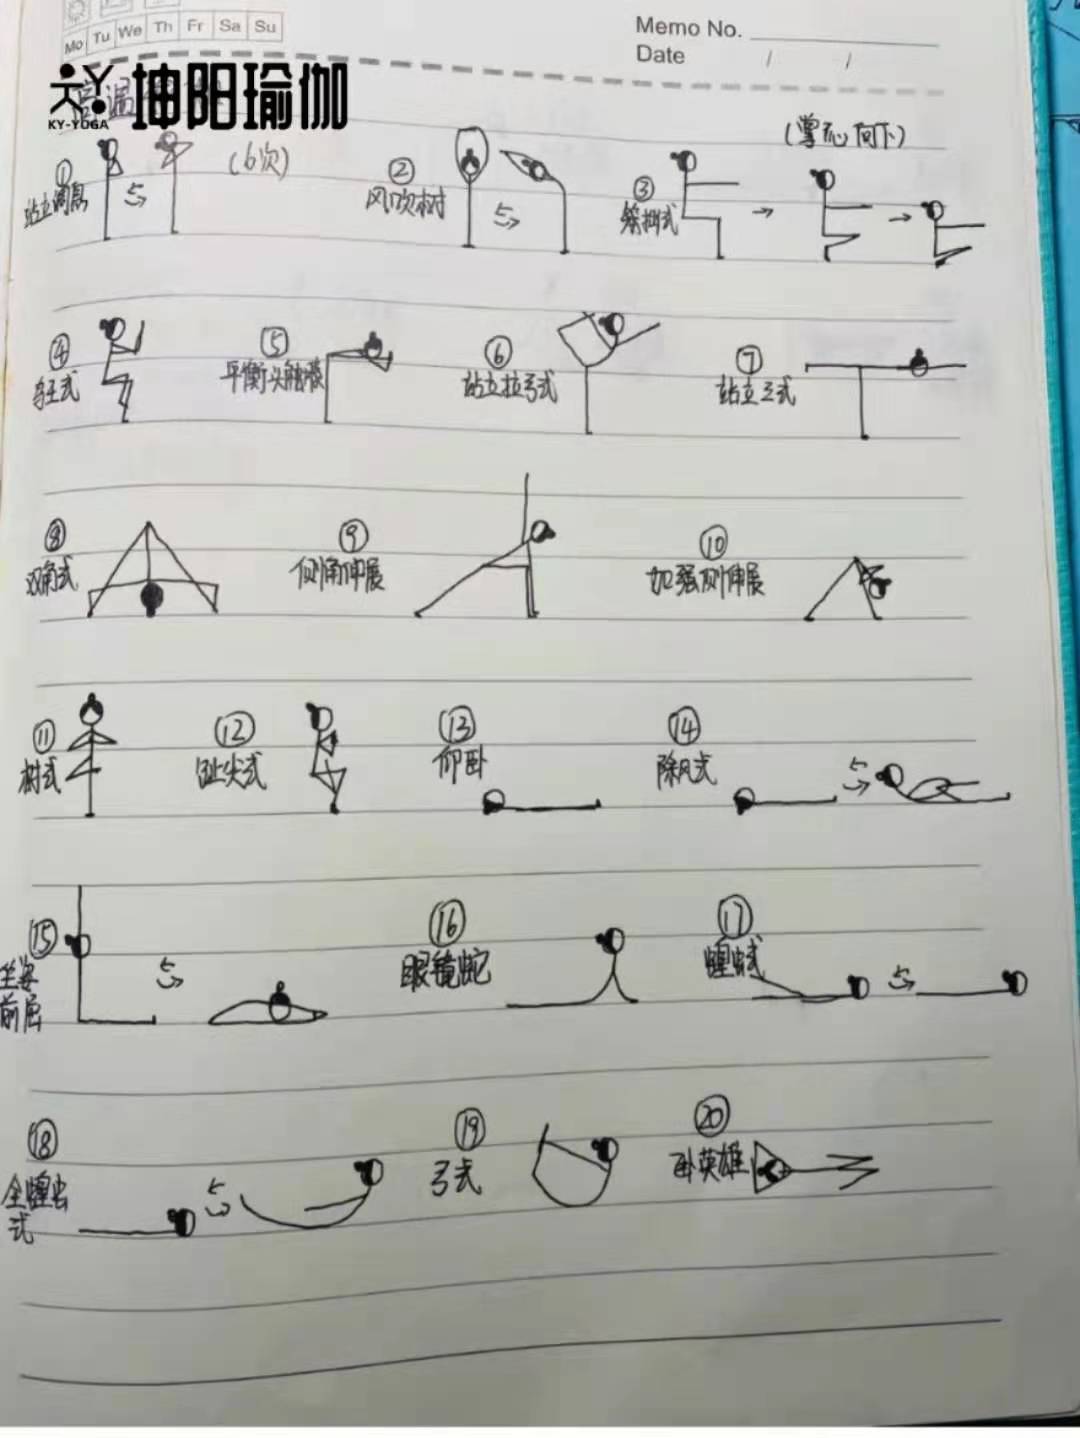 Mo Tu We Th Fr Sa Su
Memo No.
Date / /
坤阳瑜伽
KY-YOGA
高温
(6次)
(掌心向下)
① 站立调息 5
② 风吹树 5
③ 笨拙式
④ 鸟王式
⑤ 平衡头触膝
⑥ 站立拉弓式
⑦ 站立三式
⑧ 双角式
⑨ 侧角伸展
⑩ 加强侧伸展
⑪ 树式
⑫ 趾尖式
⑬ 仰卧
⑭ 除风式 5
⑮ 坐姿 5
前屈
⑯ 眼镜蛇
⑰ 蝗虫式 5
⑱ 全蝗虫 5
式
⑲ 弓式
⑳ 卧英雄